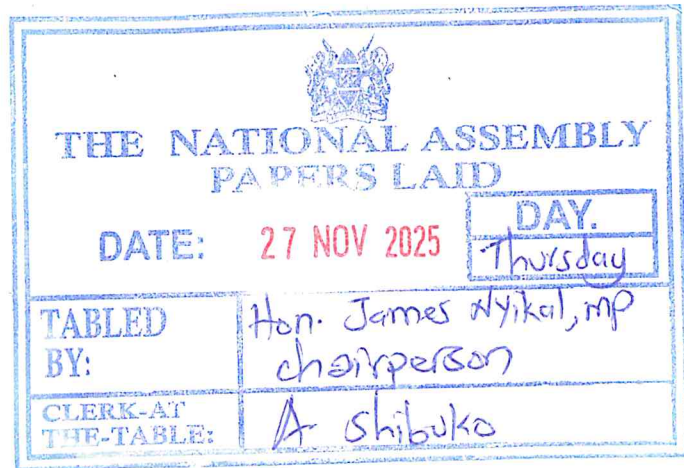 THE NATIONAL ASSEMBLY
PAPERS LAID
DATE: 27 NOV 2025
DAY.
Thursday
TABLED BY:
Hon. James Nyikal, MP
chairperson
CLERK-AT THE-TABLE:
A. Shibuko